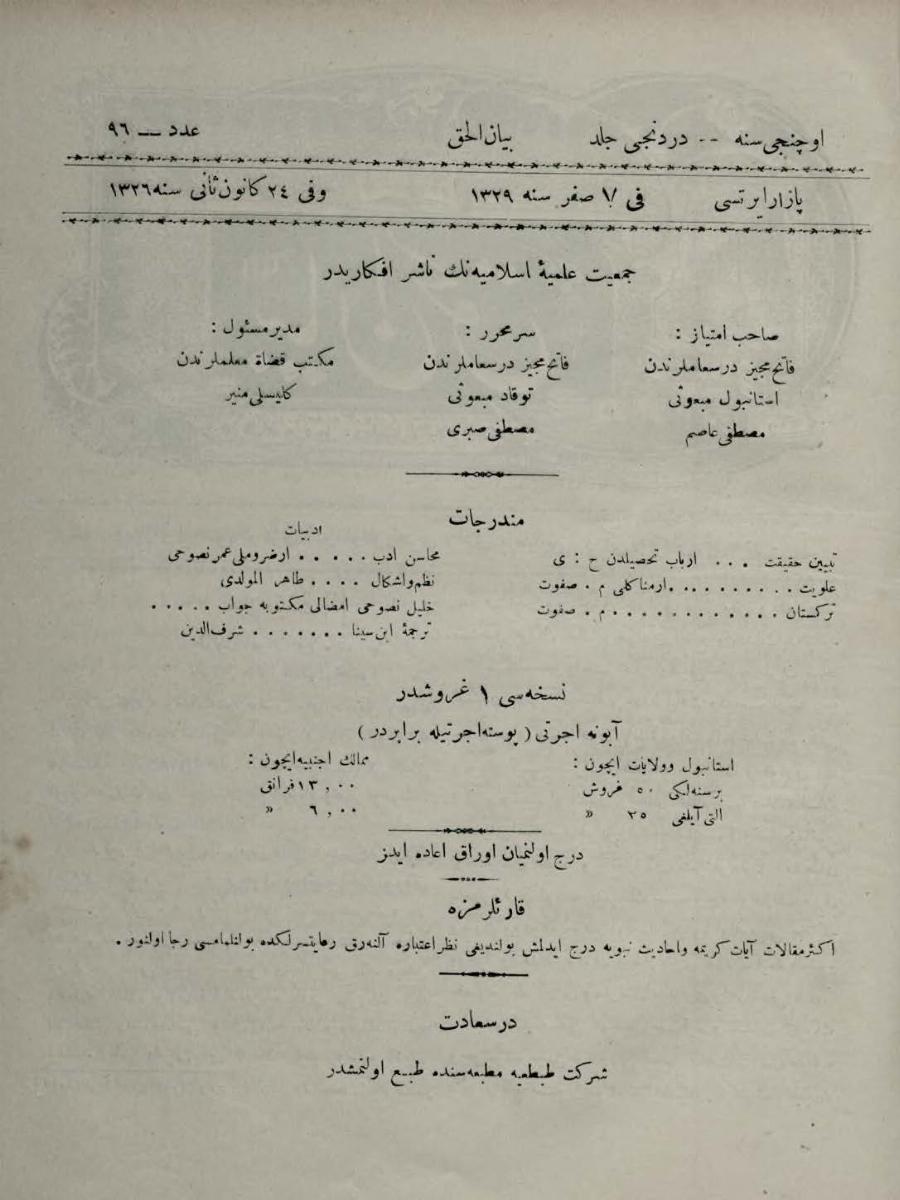 اوچنجی سنه -- دردنجی جلد بیان الحق عدد — ٩٦
پازار ایرتسی فی ٧ صفر سنه ١٣٢٩ وفی ٢٤ كانون ثانی سنه ١٣٢٦
جمعیت علمیهٔ اسلامیه‌نك ناشر افكاریدر
صاحب امتیاز :
فاتح مجیز درسعاملرندن
استانبول مبعوثی
مصطفی عاصم
سرمحرر :
فاتح مجیز درسعاملرندن
توقاد مبعوثی
مصطفی صبری
مدیر مسئول :
مكتب قضاة معلملرندن
كلیسلی منیر
مندرجات
تبیین حقیقت . . . ارباب تحصیلدن ح : ی
علویت . . . . . . . . . ارمناكلی م . صفوت
تركستان . . . . . . . . . . . . م . صفوت
ادبیات
محاسن ادب . . . . . ارضروملی عمر نصوحی
نظم واشكال . . . . طاهر المولدی
خلیل نصوحی امضالی مكتوبه جواب . . . . .
ترجمهٔ ابن سینا . . . . . . . شرف الدین
نسخه‌سی ١ غروشدر
آبونه اجرتی ( پوسته اجرتیله برابردر )
استانبول وولایات ایچون :
برسنه‌لكی ٥٠ غروش
التی آیلغی ٢٥ »
ممالك اجنبیه ایچون :
١٣,٠٠ فرانق
٦,٠٠ »
درج اولنمیان اوراق اعاده ایدز
قارئلرمزه
اكثر مقالات آیات كریمه واحادیث نبویه درج ایدلمش بولندیغی نظر اعتباره آلنه‌رق رعایتسزلكده بولنلمامسی رجا اولنور .
درسعادت
شركت طبعیه مطبعه‌سنده طبع اولنمشدر